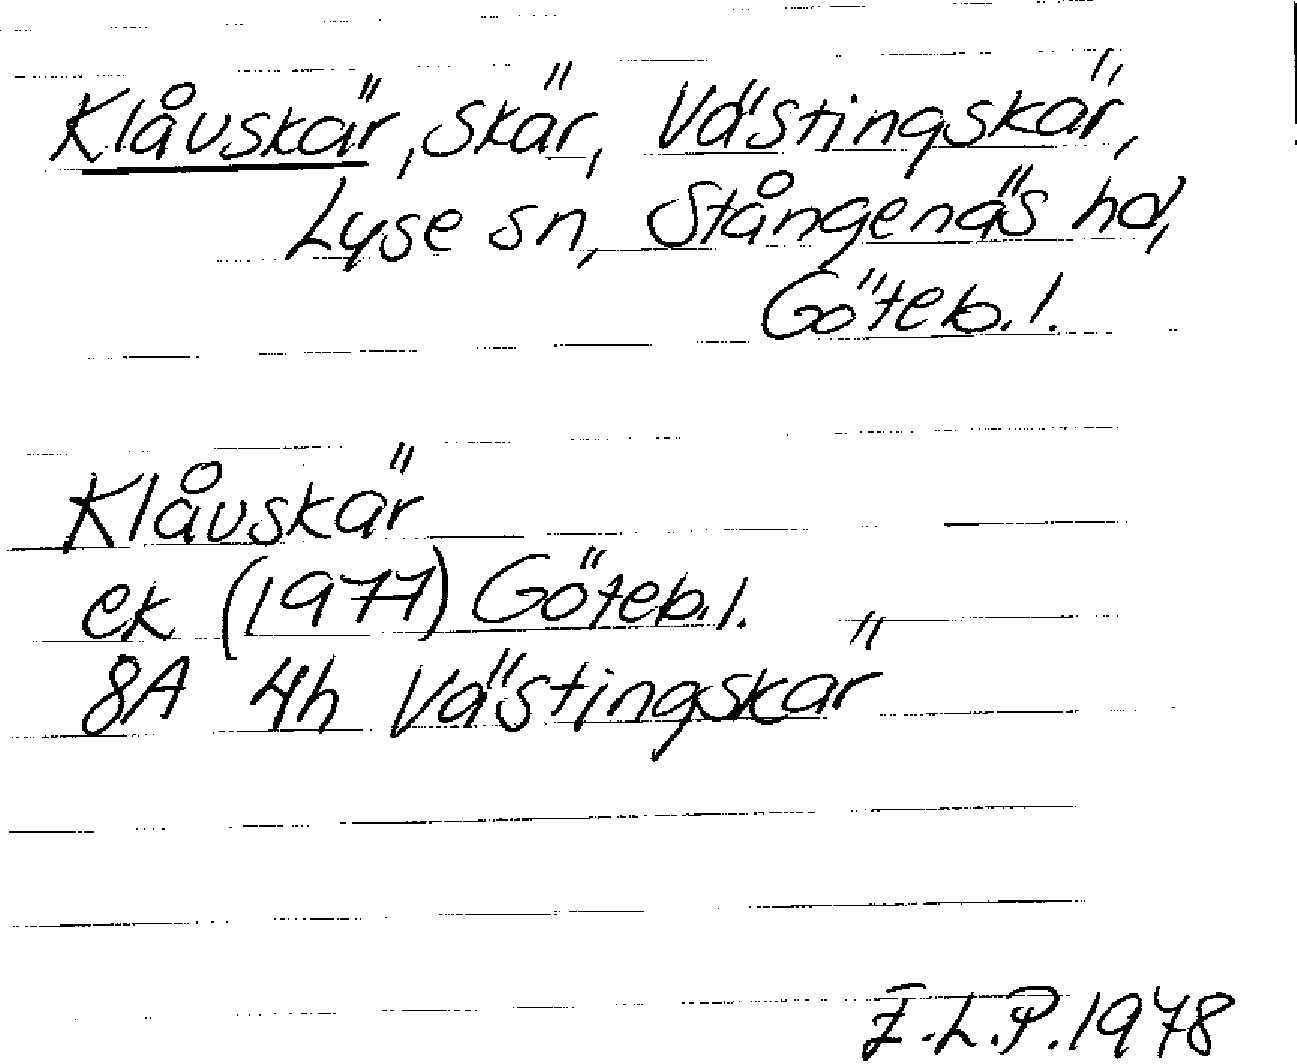 Klåvskär, skär, Västingskär,
Lyse sn, Stångenäs hd,
Göteb. l.
Klåvskär
ek (1977) Göteb. l.
8A 4h Västingskär
I.L.P. 1978